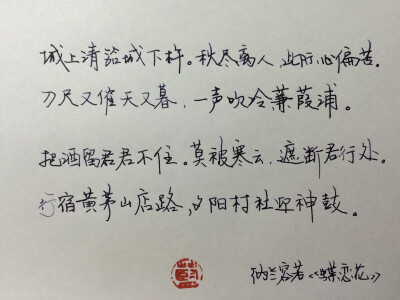 城上清笳城下杵。秋尽离人，此际心偏苦。
刀尺又催天又暮，一声吹冷蒹葭浦。
把酒留君君不住。莫被寒云，遮断君行处。
行宿黄茅山店路，夕阳村社迎神鼓。
纳兰容若《蝶恋花》